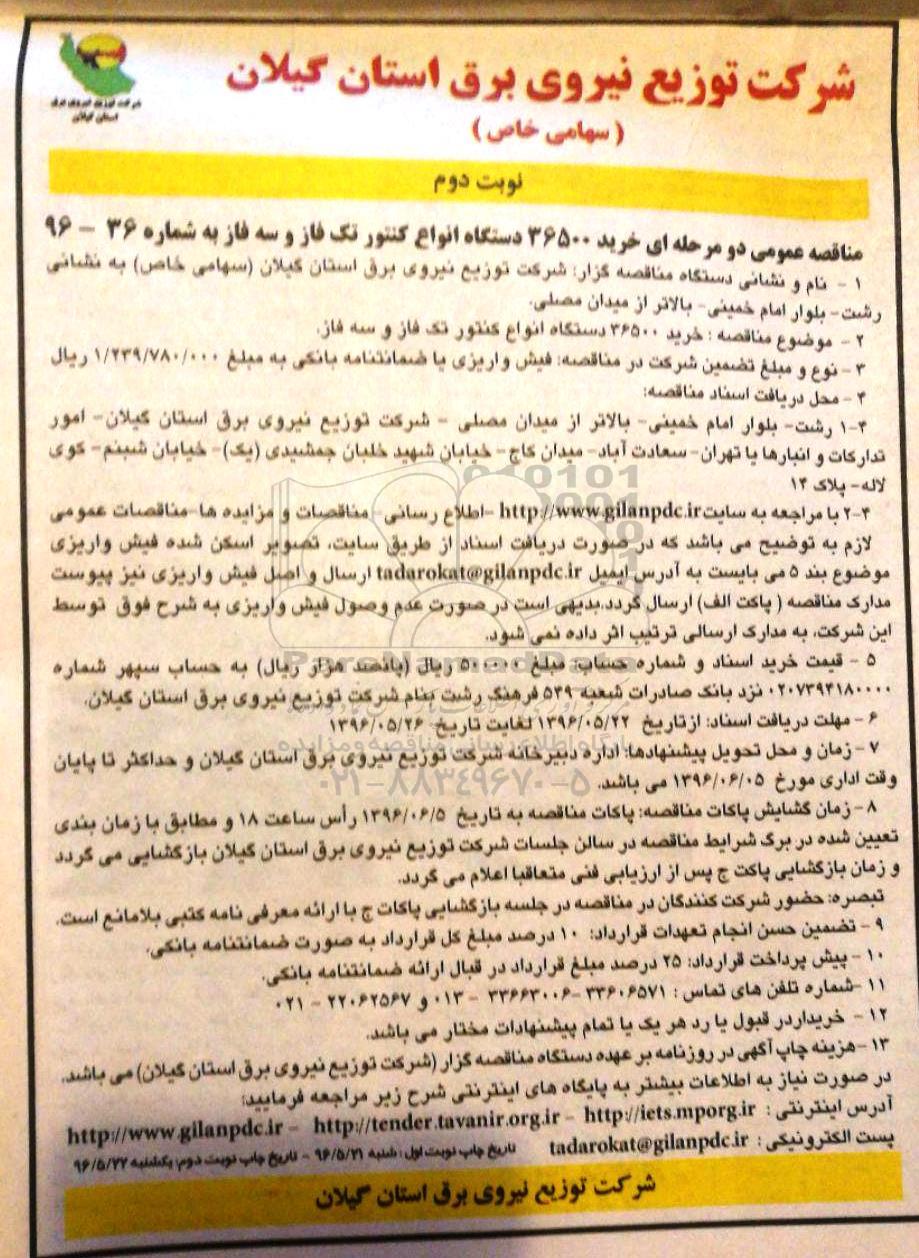 شرکت توزیع نیروی برق استان گیلان
( سهامی خاص )
شرکت توزیع نیروی برق
استان گیلان
نوبت دوم
مناقصه عمومی دو مرحله ای خرید ۳۶۵۰۰ دستگاه انواع کنتور تک فاز و سه فاز به شماره ۳۶ - ۹۶
۱ - نام و نشانی دستگاه مناقصه گزار: شرکت توزیع نیروی برق استان گیلان (سهامی خاص) به نشانی
رشت- بلوار امام خمینی- بالاتر از میدان مصلی.
۲ - موضوع مناقصه : خرید ۳۶۵۰۰ دستگاه انواع کنتور تک فاز و سه فاز.
۳ - نوع و مبلغ تضمین شرکت در مناقصه: فیش واریزی یا ضمانتنامه بانکی به مبلغ ۱/۲۳۹/۷۸۰/۰۰۰ ریال
۴ - محل دریافت اسناد مناقصه:
۴-۱ رشت- بلوار امام خمینی- بالاتر از میدان مصلی - شرکت توزیع نیروی برق استان گیلان- امور
تدارکات و انبارها یا تهران- سعادت آباد- میدان کاج- خیابان شهید خلبان جمشیدی (یک)- خیابان شبنم- کوی
لاله- پلاک ۱۴
۴-۲ با مراجعه به سایت http://www.gilanpdc.ir -اطلاع رسانی- مناقصات و مزایده ها-مناقصات عمومی
لازم به توضیح می باشد که در صورت دریافت اسناد از طریق سایت، تصویر اسکن شده فیش واریزی
موضوع بند ۵ می بایست به آدرس ایمیل tadarokat@gilanpdc.ir ارسال و اصل فیش واریزی نیز پیوست
مدارک مناقصه ( پاکت الف) ارسال گردد.بدیهی است در صورت عدم وصول فیش واریزی به شرح فوق توسط
این شرکت، به مدارک ارسالی ترتیب اثر داده نمی شود.
۵ - قیمت خرید اسناد و شماره حساب: مبلغ ۵۰۰۰۰۰ ریال (پانصد هزار ریال) به حساب سپهر شماره
۰۲۰۷۳۹۴۱۸۰۰۰۰ نزد بانک صادرات شعبه ۵۴۹ فرهنگ رشت بنام شرکت توزیع نیروی برق استان گیلان.
۶ - مهلت دریافت اسناد: از تاریخ ۱۳۹۶/۰۵/۲۲ لغایت تاریخ ۱۳۹۶/۰۵/۲۶
۷ - زمان و محل تحویل پیشنهادها: اداره دبیرخانه شرکت توزیع نیروی برق استان گیلان و حداکثر تا پایان
وقت اداری مورخ ۱۳۹۶/۰۶/۰۵ می باشد.
۸ - زمان گشایش پاکات مناقصه: پاکات مناقصه به تاریخ ۱۳۹۶/۰۶/۵ رأس ساعت ۱۸ و مطابق با زمان بندی
تعیین شده در برگ شرایط مناقصه در سالن جلسات شرکت توزیع نیروی برق استان گیلان بازگشایی می گردد
و زمان بازگشایی پاکت ج پس از ارزیابی فنی متعاقبا اعلام می گردد.
تبصره: حضور شرکت کنندگان در مناقصه در جلسه بازگشایی پاکات ج با ارائه معرفی نامه کتبی بلامانع است.
۹ - تضمین حسن انجام تعهدات قرارداد: ۱۰ درصد مبلغ کل قرارداد به صورت ضمانتنامه بانکی.
۱۰ - پیش پرداخت قرارداد: ۲۵ درصد مبلغ قرارداد در قبال ارائه ضمانتنامه بانکی.
۱۱ -شماره تلفن های تماس : ۳۳۶۰۶۵۷۱ -۳۳۶۶۳۰۰۶ - ۰۱۳ و ۲۲۰۶۲۵۶۷ - ۰۲۱
۱۲ - خریداردر قبول یا رد هر یک یا تمام پیشنهادات مختار می باشد.
۱۳ -هزینه چاپ آگهی در روزنامه بر عهده دستگاه مناقصه گزار (شرکت توزیع نیروی برق استان گیلان) می باشد.
در صورت نیاز به اطلاعات بیشتر به پایگاه های اینترنتی شرح زیر مراجعه فرمایید:
آدرس اینترنتی : http://iets.mporg.ir - http://tender.tavanir.org.ir - http://www.gilanpdc.ir
پست الکترونیکی : tadarokat@gilanpdc.ir تاریخ چاپ نوبت اول: شنبه ۹۶/۵/۲۱ - تاریخ چاپ نوبت دوم: یکشنبه ۹۶/۵/۲۲
شرکت توزیع نیروی برق استان گیلان
۰۲۱-۸۸۳۴۹۶۷۰-۵